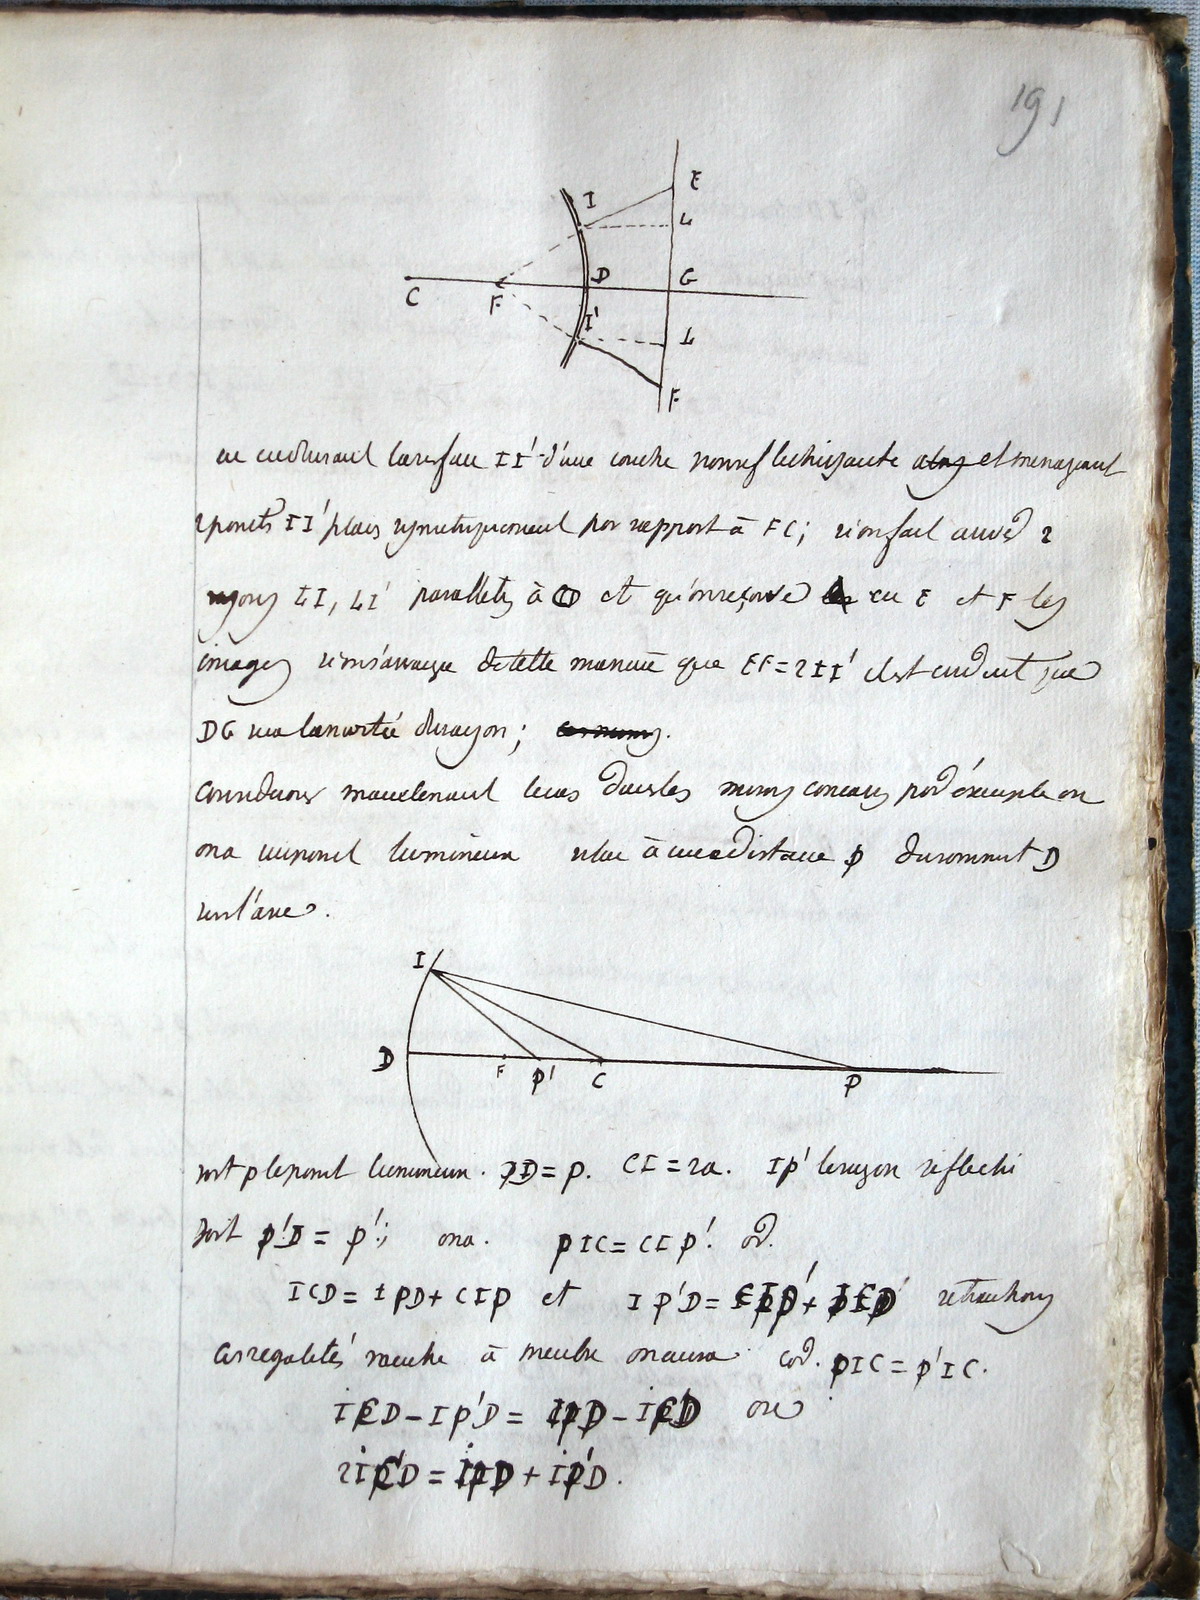 191
I
E
L
D
G
C
F
I'
L
F
en enduisant la surface II' d'une couche non reflechissante et menageant
2 points II' placés symetriquement par rapport à FC; si on fait arriver 2
rayons LI, LI' paralleles à CD et qu'on reçoive en E et F les
images si on s'arrange de telle maniere que EF=2II' il est evident que
DG sera la moitié du rayon;
Considerons maintenant le cas des miroirs concaves par exemple on
on a un point lumineux situé à une distance p du sommet D
sur l'axe.
I
D
F
P'
C
P
soit p le point lumineux. PD=p. CI=2a. Ip' le rayon reflechi
soit p'D = p'; on a. pIC=CIp'. or.
ICD=IPD+CIP et Ip'D= retranchons
ces egalités membre à membre on aura car. pIC=p'IC.
ICD-Ip'D=IPD-ICD ou
2ICD=IPD+IP'D.